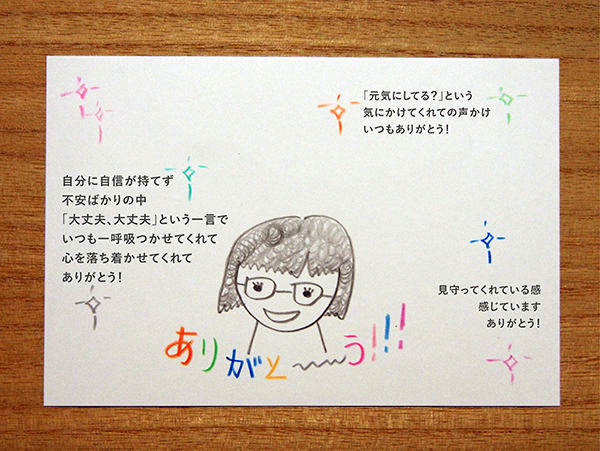 「元気にしてる?」という
気にかけてくれての声かけ
いつもありがとう!
自分に自信が持てず
不安ばかりの中
「大丈夫、大丈夫」という一言で
いつも一呼吸つかせてくれて
心を落ち着かせてくれて
ありがとう!
見守ってくれている感
感じています
ありがとう!
ありがと〜〜う!!!